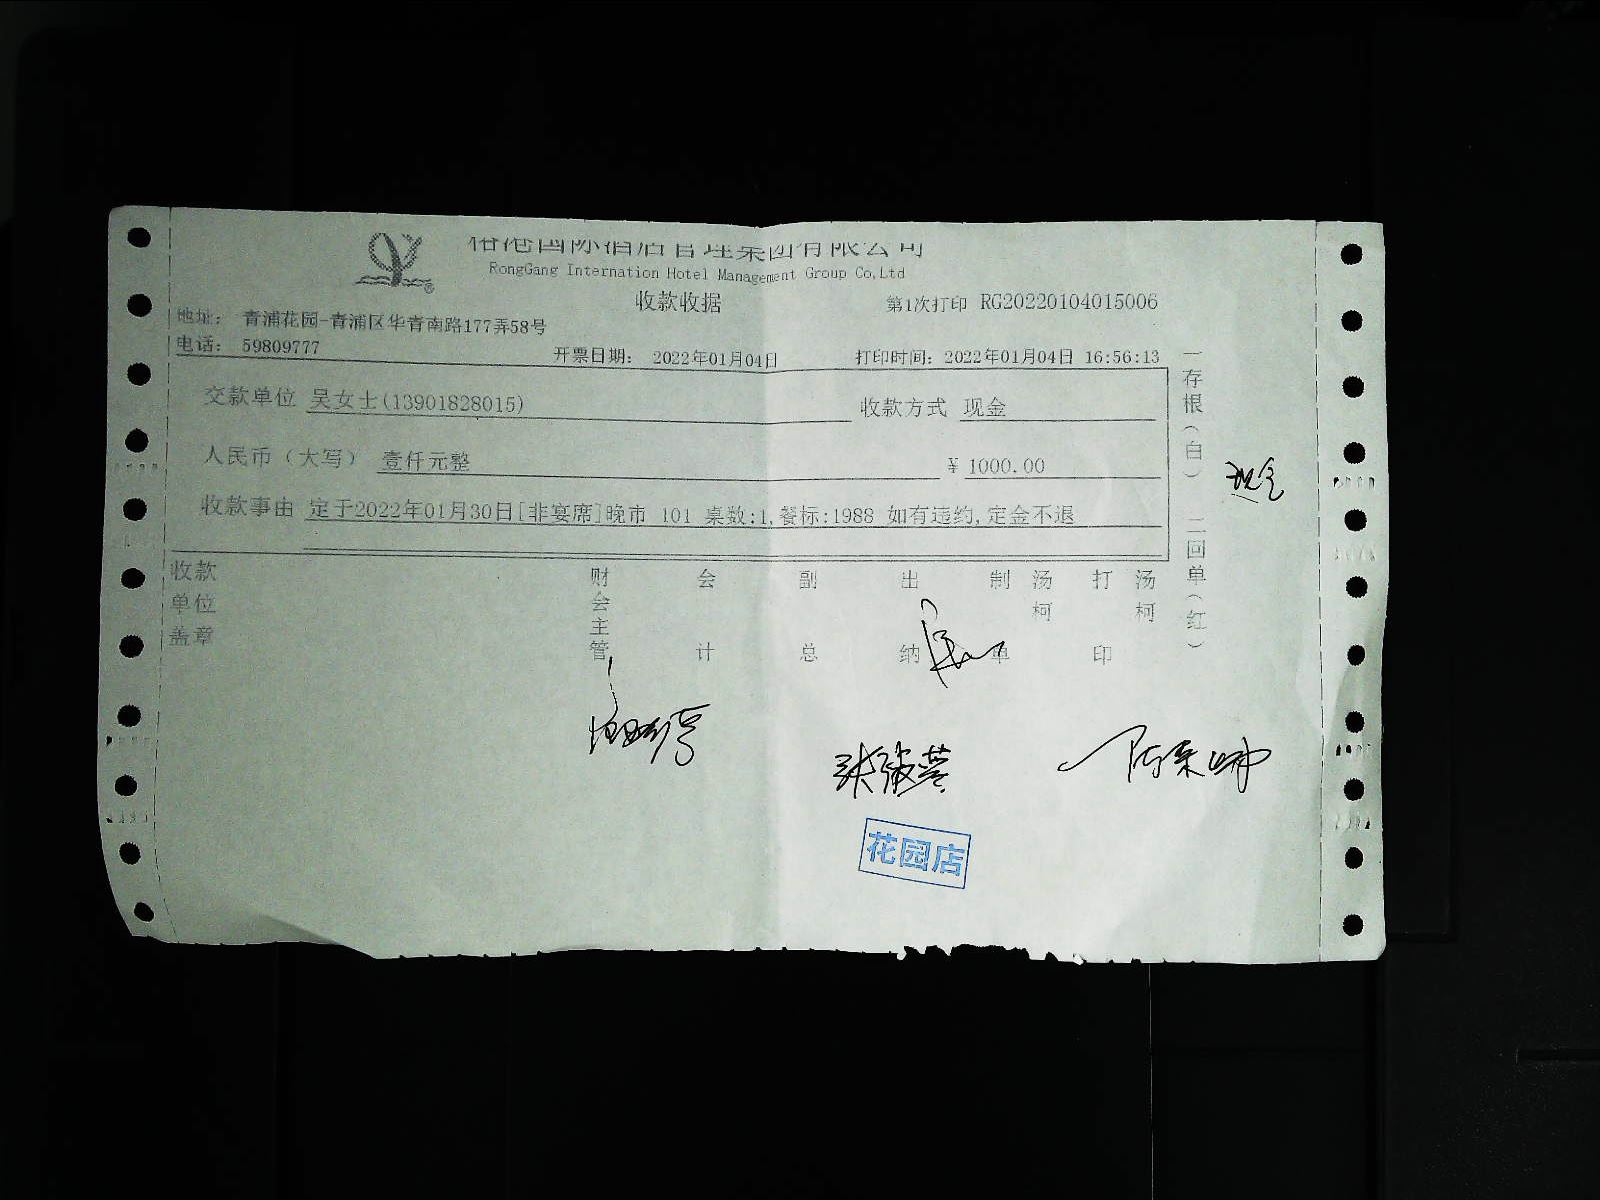 裕港国际酒店管理集团有限公司
RongGang Internation Hotel Management Group Co,Ltd
收款收据
第1次打印 RG20220104015006
地址: 青浦花园-青浦区华青南路177弄58号
电话: 59809777
开票日期: 2022年01月04日
打印时间: 2022年01月04日 16:56:13
交款单位 吴女士(13901828015)
收款方式 现金
人民币（大写） 壹仟元整
¥ 1000.00
收款事由 定于2022年01月30日[非宴席]晚市 101 桌数:1,餐标:1988 如有违约,定金不退
一存根（白） 二回单（红）
现金
收款单位盖章
财会主管
会计
副总
出纳
制单
汤柯
打印
汤柯
花园店